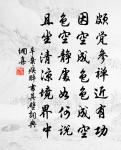 頗覺參禪近有功
因空成色色成空
色空靜處如何說
且坐清涼境界中
辛棄疾醉書其壁詞典
網